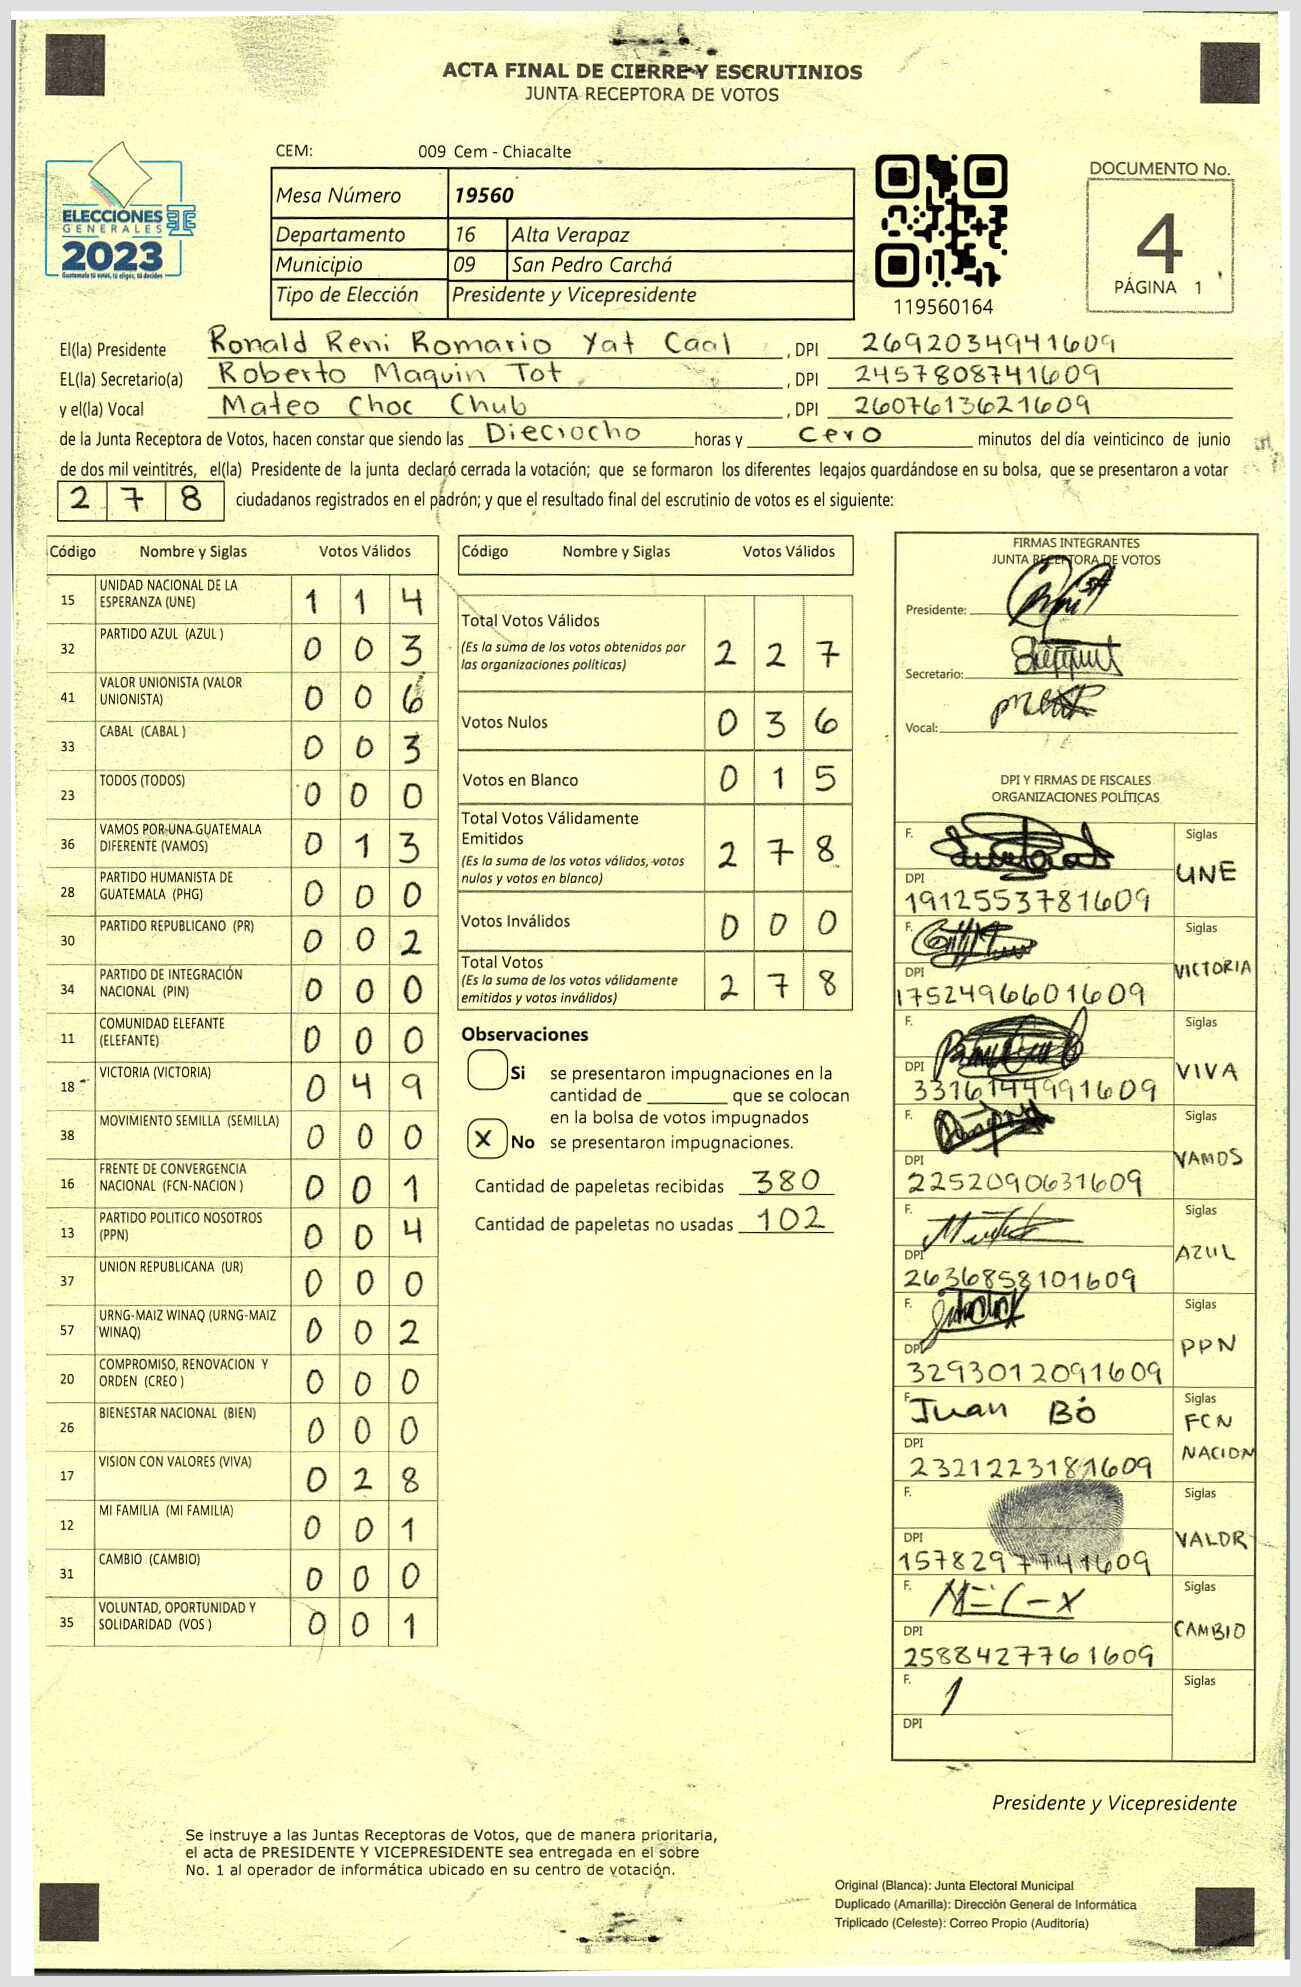 ACTA FINAL DE CIERRE Y ESCRUTINIOS
JUNTA RECEPTORA DE VOTOS
CEM: 009 Cem - Chiacalte
ELECCIONES
GENERALES
2023
Guatemala tú votas, tú eliges, tú decides
Mesa Número 19560
Departamento 16 Alta Verapaz
Municipio 09 San Pedro Carchá
Tipo de Elección Presidente y Vicepresidente
119560164
DOCUMENTO No.
4
PÁGINA 1
El(la) Presidente Ronald Reni Romario Yat Caal , DPI 2692034941609
EL(la) Secretario(a) Roberto Maquin Tot , DPI 2457808741609
y el(la) Vocal Mateo Choc Chub , DPI 2607613621609
de la Junta Receptora de Votos, hacen constar que siendo las Dieciocho horas y cero minutos del día veinticinco de junio
de dos mil veintitrés, el(la) Presidente de la junta declaró cerrada la votación; que se formaron los diferentes legajos guardándose en su bolsa, que se presentaron a votar
2 7 8 ciudadanos registrados en el padrón; y que el resultado final del escrutinio de votos es el siguiente:
Código Nombre y Siglas Votos Válidos
15 UNIDAD NACIONAL DE LA ESPERANZA (UNE) 1 1 4
32 PARTIDO AZUL (AZUL ) 0 0 3
41 VALOR UNIONISTA (VALOR UNIONISTA) 0 0 6
33 CABAL (CABAL ) 0 0 3
23 TODOS (TODOS) 0 0 0
36 VAMOS POR UNA GUATEMALA DIFERENTE (VAMOS) 0 1 3
28 PARTIDO HUMANISTA DE GUATEMALA (PHG) 0 0 0
30 PARTIDO REPUBLICANO (PR) 0 0 2
34 PARTIDO DE INTEGRACIÓN NACIONAL (PIN) 0 0 0
11 COMUNIDAD ELEFANTE (ELEFANTE) 0 0 0
18 VICTORIA (VICTORIA) 0 4 9
38 MOVIMIENTO SEMILLA (SEMILLA) 0 0 0
16 FRENTE DE CONVERGENCIA NACIONAL (FCN-NACION ) 0 0 1
13 PARTIDO POLITICO NOSOTROS (PPN) 0 0 4
37 UNION REPUBLICANA (UR) 0 0 0
57 URNG-MAIZ WINAQ (URNG-MAIZ WINAQ) 0 0 2
20 COMPROMISO, RENOVACION Y ORDEN (CREO ) 0 0 0
26 BIENESTAR NACIONAL (BIEN) 0 0 0
17 VISION CON VALORES (VIVA) 0 2 8
12 MI FAMILIA (MI FAMILIA) 0 0 1
31 CAMBIO (CAMBIO) 0 0 0
35 VOLUNTAD, OPORTUNIDAD Y SOLIDARIDAD (VOS ) 0 0 1
Código Nombre y Siglas Votos Válidos
Total Votos Válidos 2 2 7
(Es la suma de los votos obtenidos por
las organizaciones políticas)
Votos Nulos 0 3 6
Votos en Blanco 0 1 5
Total Votos Válidamente
Emitidos 2 7 8
(Es la suma de los votos válidos, votos
nulos y votos en blanco)
Votos Inválidos 0 0 0
Total Votos 2 7 8
(Es la suma de los votos válidamente
emitidos y votos inválidos)
Observaciones
Si se presentaron impugnaciones en la
cantidad de ________ que se colocan
en la bolsa de votos impugnados
X No se presentaron impugnaciones.
Cantidad de papeletas recibidas 380
Cantidad de papeletas no usadas 102
FIRMAS INTEGRANTES
JUNTA RECEPTORA DE VOTOS
Presidente:
Secretario:
Vocal:
DPI Y FIRMAS DE FISCALES
ORGANIZACIONES POLÍTICAS
F. Siglas
UNE
DPI
1912553781609
F. Siglas
VICTORIA
DPI
1752496601609
F. Siglas
VIVA
DPI
3316144991609
F. Siglas
VAMOS
DPI
2252090631609
F. Siglas
AZUL
DPI
2636858101609
F. Siglas
PPN
DPI
3293012091609
F. Juan Bó Siglas
FCN
NACION
DPI
2321223181609
F. Siglas
VALOR
DPI
1578297741609
F. Siglas
CAMBIO
DPI
2588427761609
F. Siglas
DPI
Presidente y Vicepresidente
Se instruye a las Juntas Receptoras de Votos, que de manera prioritaria,
el acta de PRESIDENTE Y VICEPRESIDENTE sea entregada en el sobre
No. 1 al operador de informática ubicado en su centro de votación.
Original (Blanca): Junta Electoral Municipal
Duplicado (Amarilla): Dirección General de Informática
Triplicado (Celeste): Correo Propio (Auditoría)